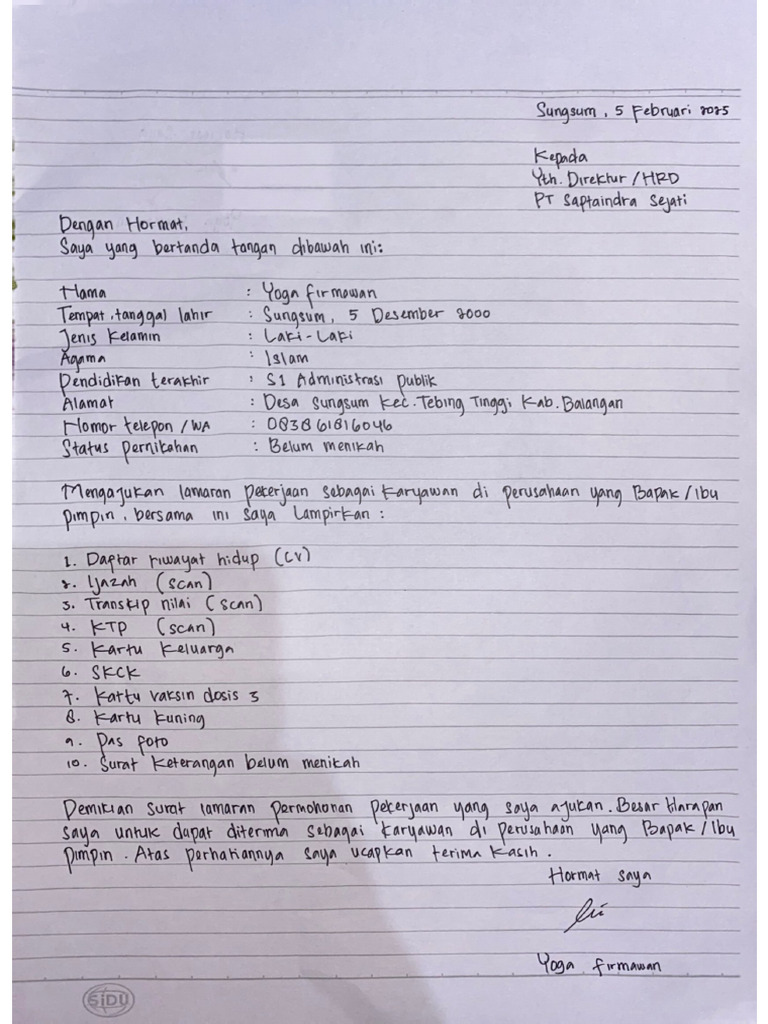 Sungsum, 5 Februari 2025
Kepada
Yth. Direktur/HRD
PT Saptaindra Sejati
Dengan Hormat,
Saya yang bertanda tangan dibawah ini:
Nama : Yoga firmawan
Tempat, tanggal lahir : Sungsum, 5 Desember 2000
Jenis Kelamin : Laki-Laki
Agama : Islam
Pendidikan terakhir : S1 Administrasi publik
Alamat : Desa Sungsum Kec. Tebing Tinggi Kab. Balangan
Nomor telepon /WA : 083861816046
Status pernikahan : Belum menikah
Mengajukan lamaran pekerjaan sebagai karyawan di perusahaan yang Bapak/Ibu
pimpin, bersama ini saya Lampirkan :
1. Daptar riwayat hidup (CV)
2. Ijazah (scan)
3. Transkip nilai (scan)
4. KTP (scan)
5. Kartu Keluarga
6. SKCK
7. Kartu vaksin dosis 3
8. Kartu Kuning
9. Pas foto
10. Surat Keterangan belum menikah
Demikian surat lamaran permohonan pekerjaan yang saya ajukan. Besar Harapan
saya untuk dapat diterma sebagai karyawan di perusahaan yang Bapak/Ibu
pimpin. Atas perhatiannya saya ucapkan terima kasih.
Hormat saya
Yoga firmawan
SiDU